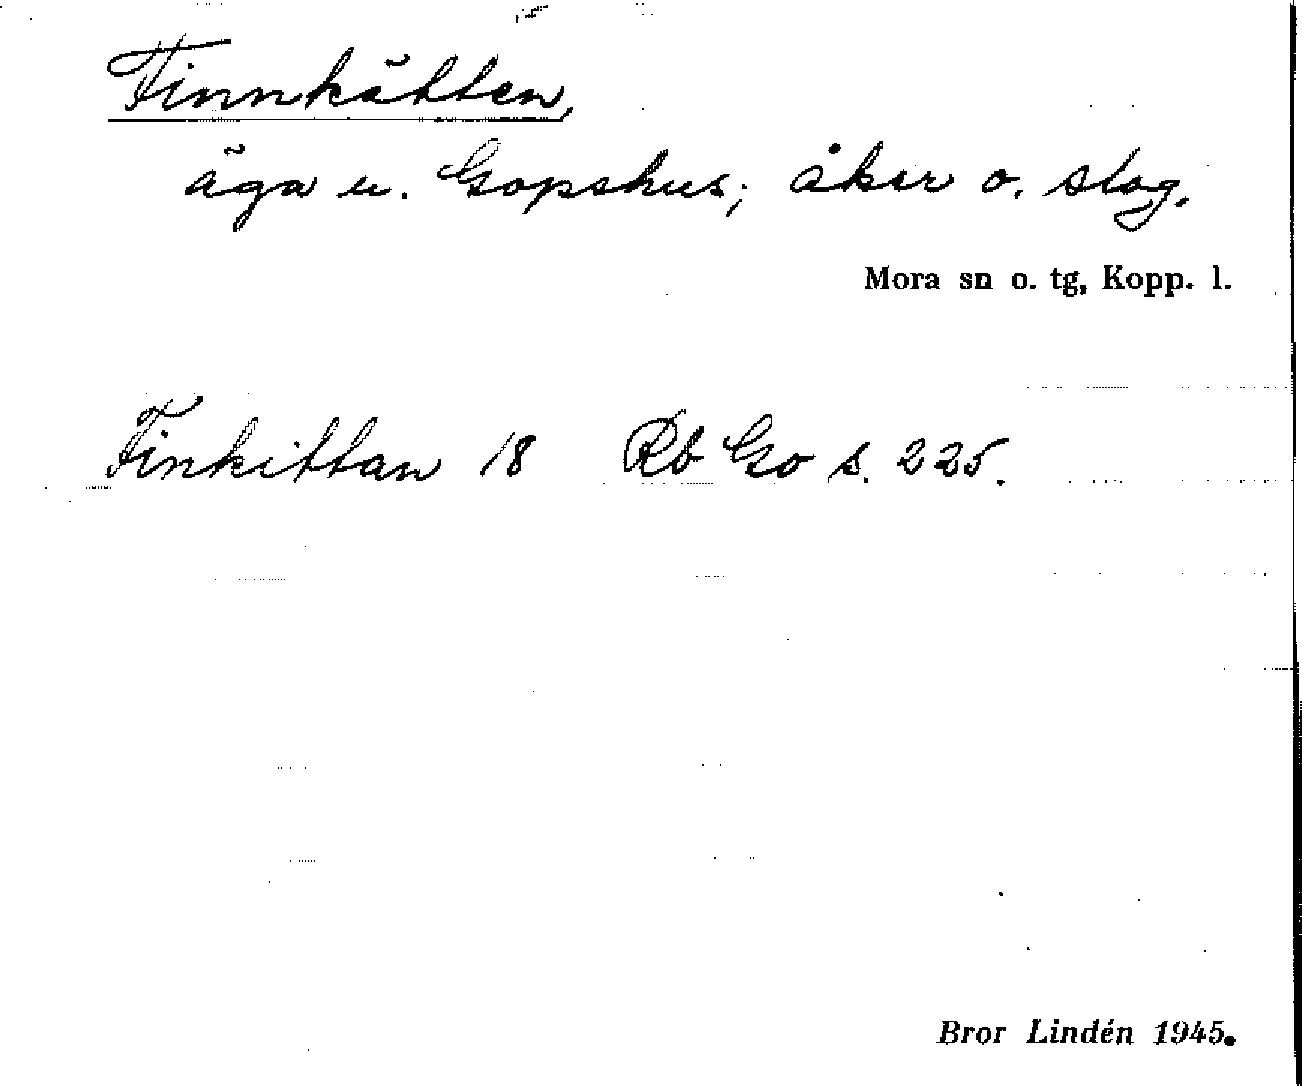 Finnkätten,
äga u. Gopshus; åker o. slog.
Mora sn o. tg, Kopp. l.
Finkittan 18 Rb Go s. 225.
Bror Lindén 1945.